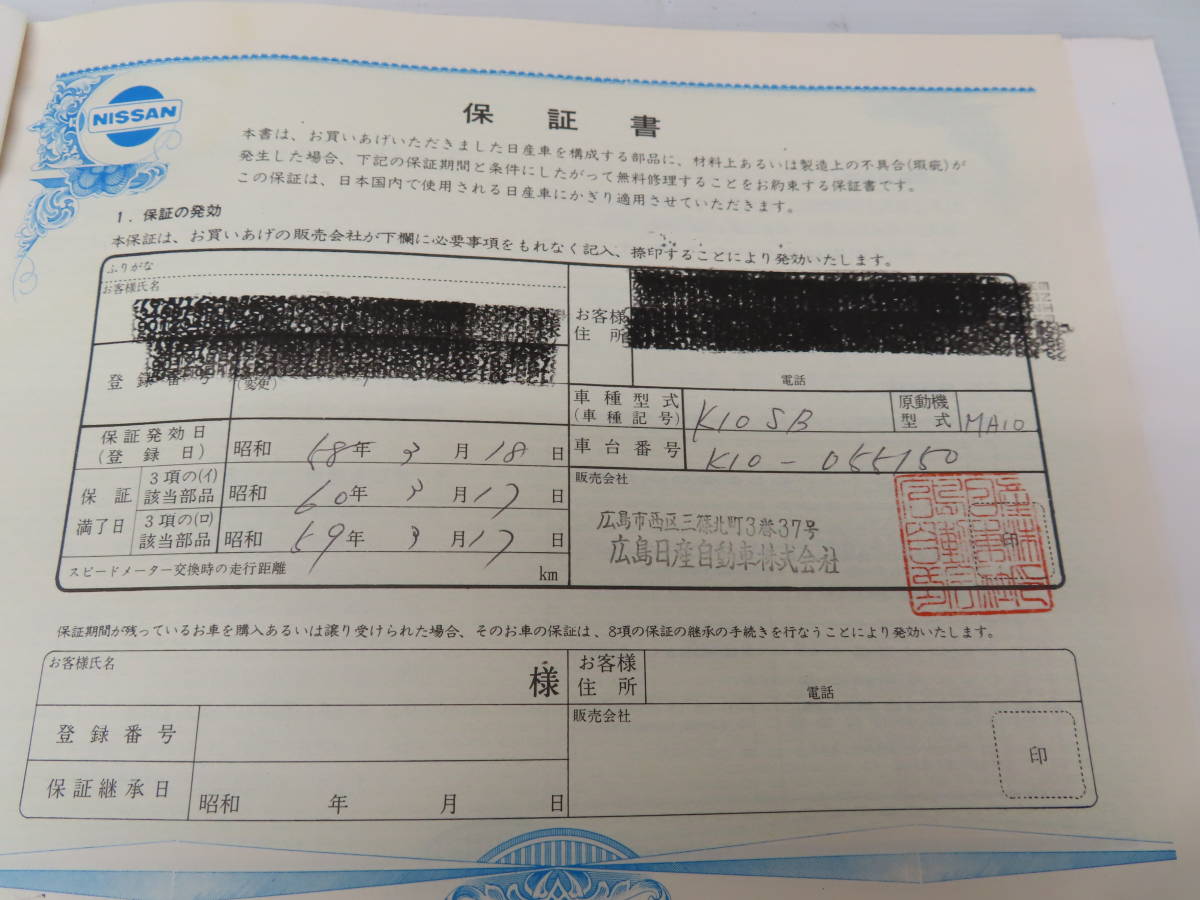 NISSAN
保証書
本書は、お買いあげいただきました日産車を構成する部品に、材料上あるいは製造上の不具合(瑕疵)が
発生した場合、下記の保証期間と条件にしたがって無料修理することをお約束する保証書です。
この保証は、日本国内で使用される日産車にかぎり適用させていただきます。
1. 保証の発効
本保証は、お買いあげの販売会社が下欄に必要事項をもれなく記入、捺印することにより発効いたします。
ふりがな
お客様氏名
お客様
住所
電話
登録番号
(変更)
車種型式
(車種記号)
K10 SB
原動機
型式
MA10
保証発効日
(登録日)
昭和 58年 3月 18日
車台番号
K10-055150
保証
満了日
3項の(イ)
該当部品
昭和 60年 3月 17日
3項の(ロ)
該当部品
昭和 59年 3月 17日
スピードメーター交換時の走行距離
km
販売会社
広島市西区三篠北町3番37号
広島日産自動車株式会社
印
保証期間が残っているお車を購入あるいは譲り受けられた場合、そのお車の保証は、8項の保証の継承の手続きを行なうことにより発効いたします。
お客様氏名
様
お客様
住所
電話
登録番号
販売会社
印
保証継承日
昭和 年 月 日